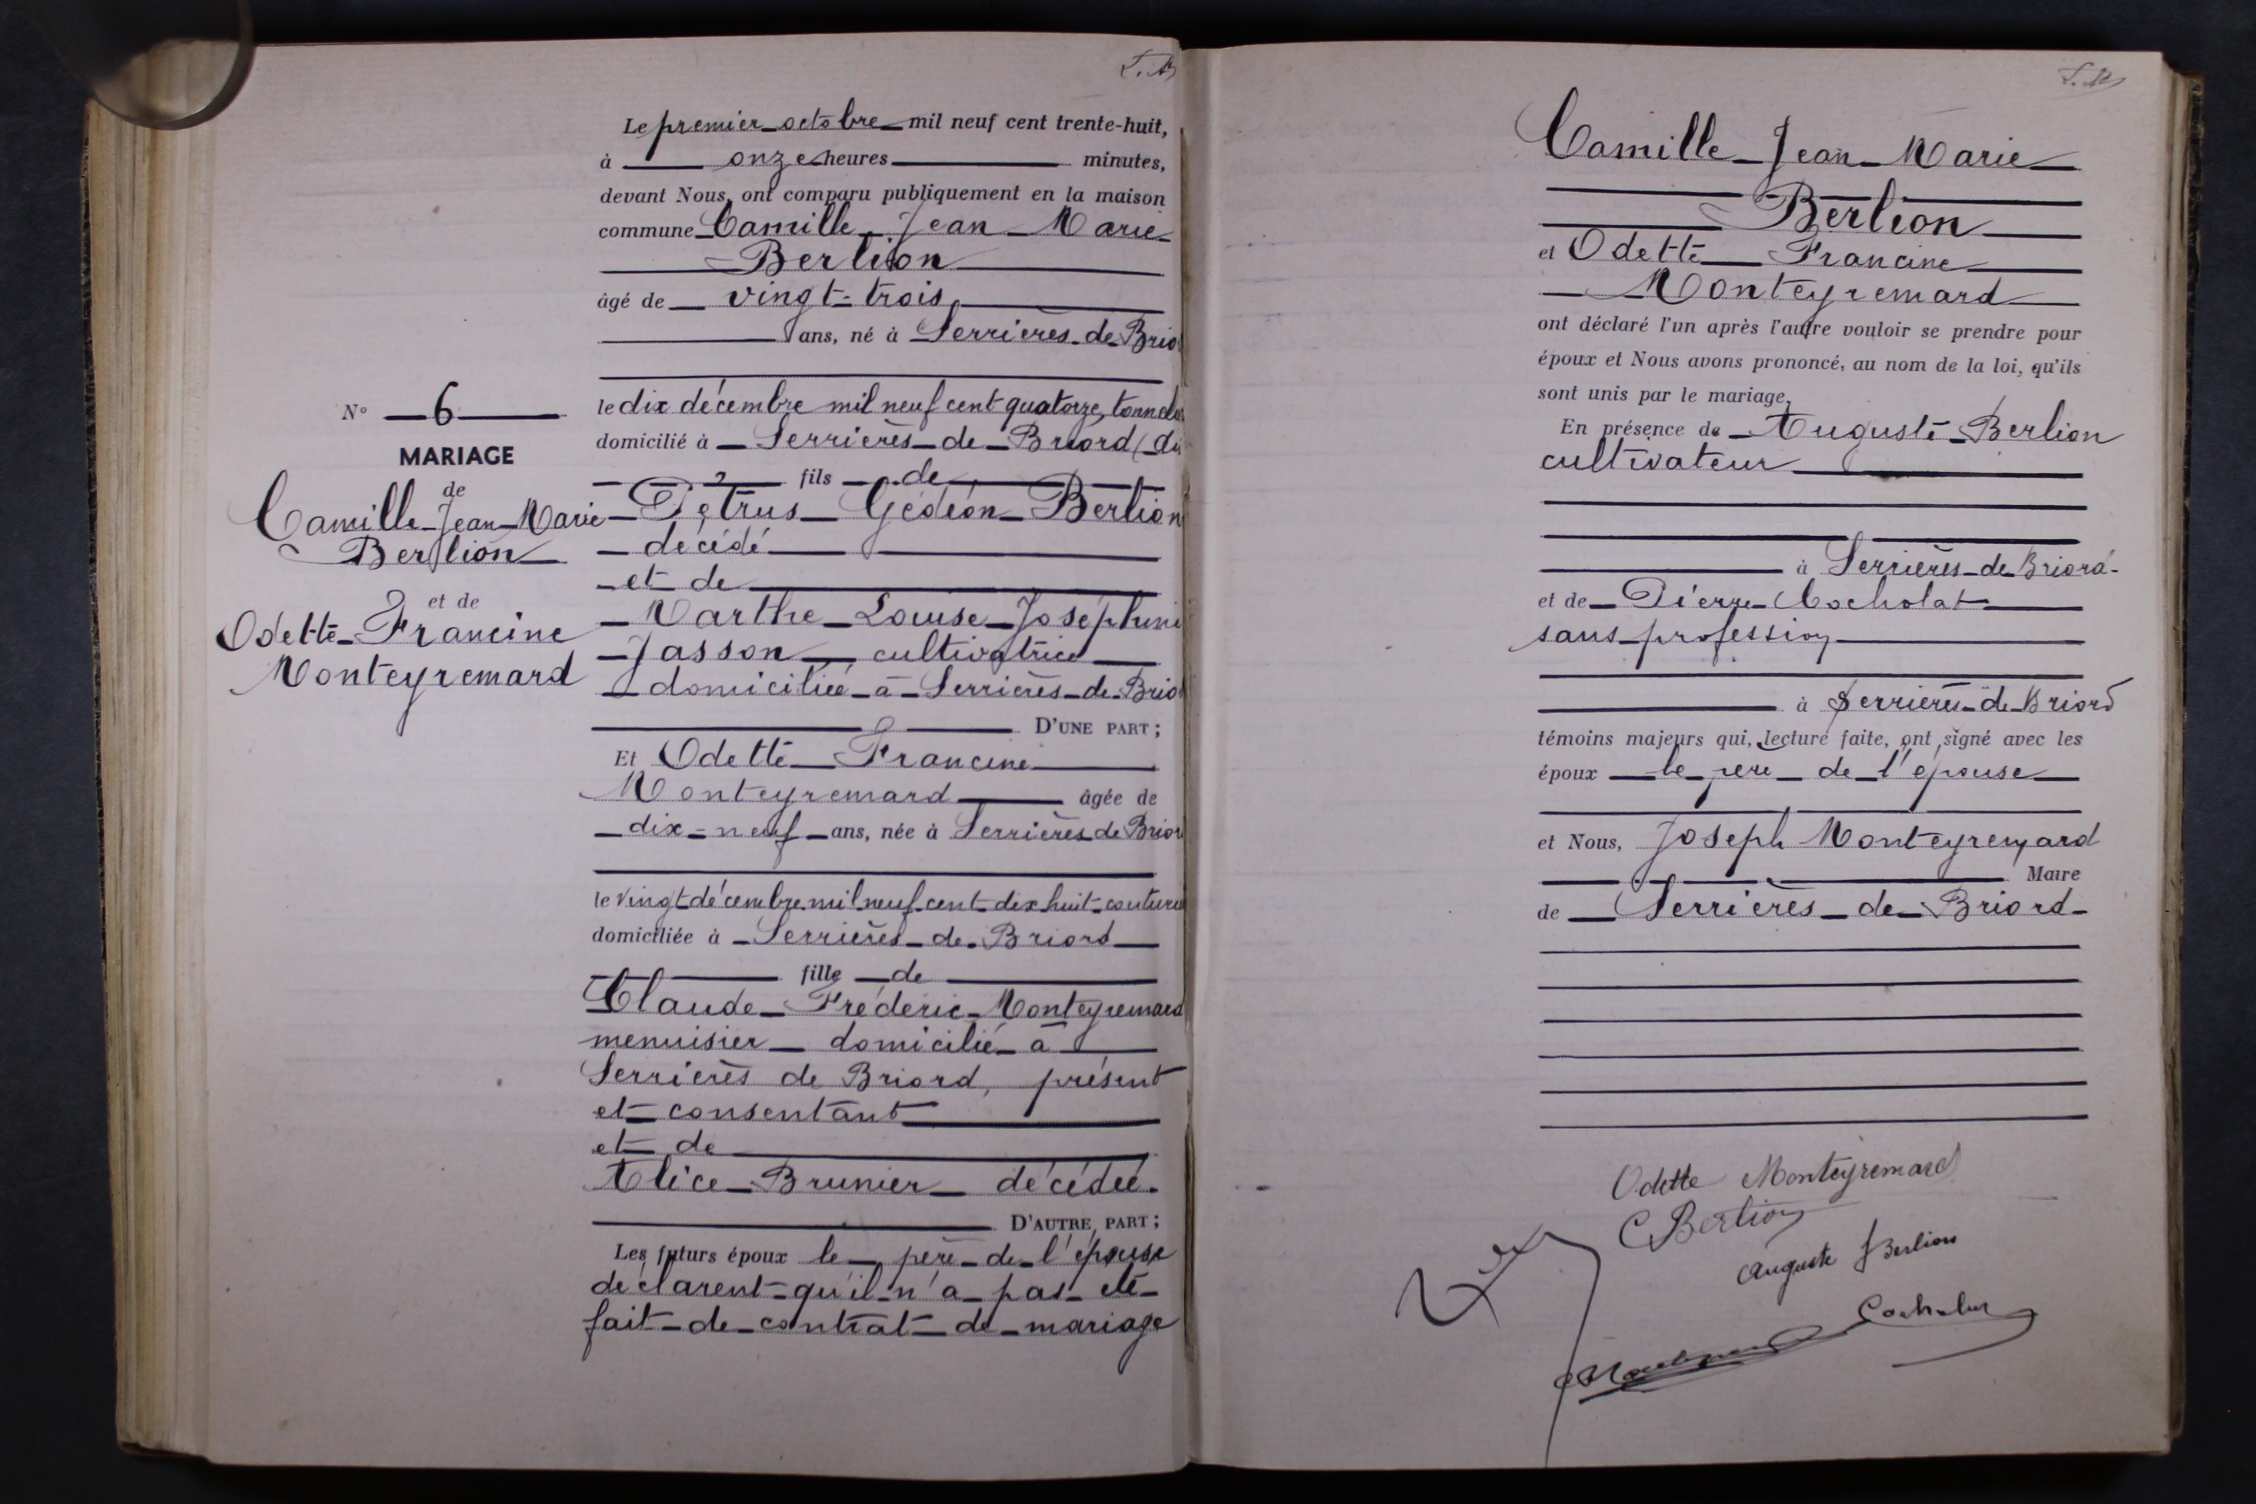 Le premier octobre mil neuf cent trente-huit,
à onze heures minutes,
devant Nous, ont comparu publiquement en la maison
commune Camille Jean Marie
Berlion
âgé de vingt-trois
ans, né à Serrières de Brio
le dix décembre mil neuf cent quatorze,
domicilié à Serrières de Briord
fils de
Pétrus Gédéon Berlion
décédé
et de
Marthe Louise Joséphine
Jasson, cultivatrice
domiciliée à Serrières de Brio
D'UNE PART;
Et Odette Francine
Monteyremard âgée de
dix-neuf ans, née à Serrières de Brior
le vingt décembre mil neuf cent dix huit couturi
domiciliée à Serrières de Briord
fille de
Claude Frédéric Monteyremard
menuisier domicilié à
Serrières de Briord, présent
et consentant
et de
Alice Brunier décédée.
D'AUTRE PART;
Les futurs époux le père de l'épouse
déclarent qu'il n'a pas été
fait de contrat de mariage
N° 6
MARIAGE
de
Camille Jean Marie
Berlion
et de
Odette Francine
Monteyremard
Camille Jean Marie
Berlion
et Odette Francine
Monteyremard
ont déclaré l'un après l'autre vouloir se prendre pour
époux et Nous avons prononcé, au nom de la loi, qu'ils
sont unis par le mariage.
En présence de Auguste Berlion
cultivateur
à Serrières de Briord
et de Pierre Cocholat
sans profession
à Serrières de Briord
témoins majeurs qui, lecture faite, ont signé avec les
époux le père de l'épouse
et Nous, Joseph Monteyremard
Maire
de Serrières de Briord
Odette Monteyremard
C Berlion
Auguste Berlion